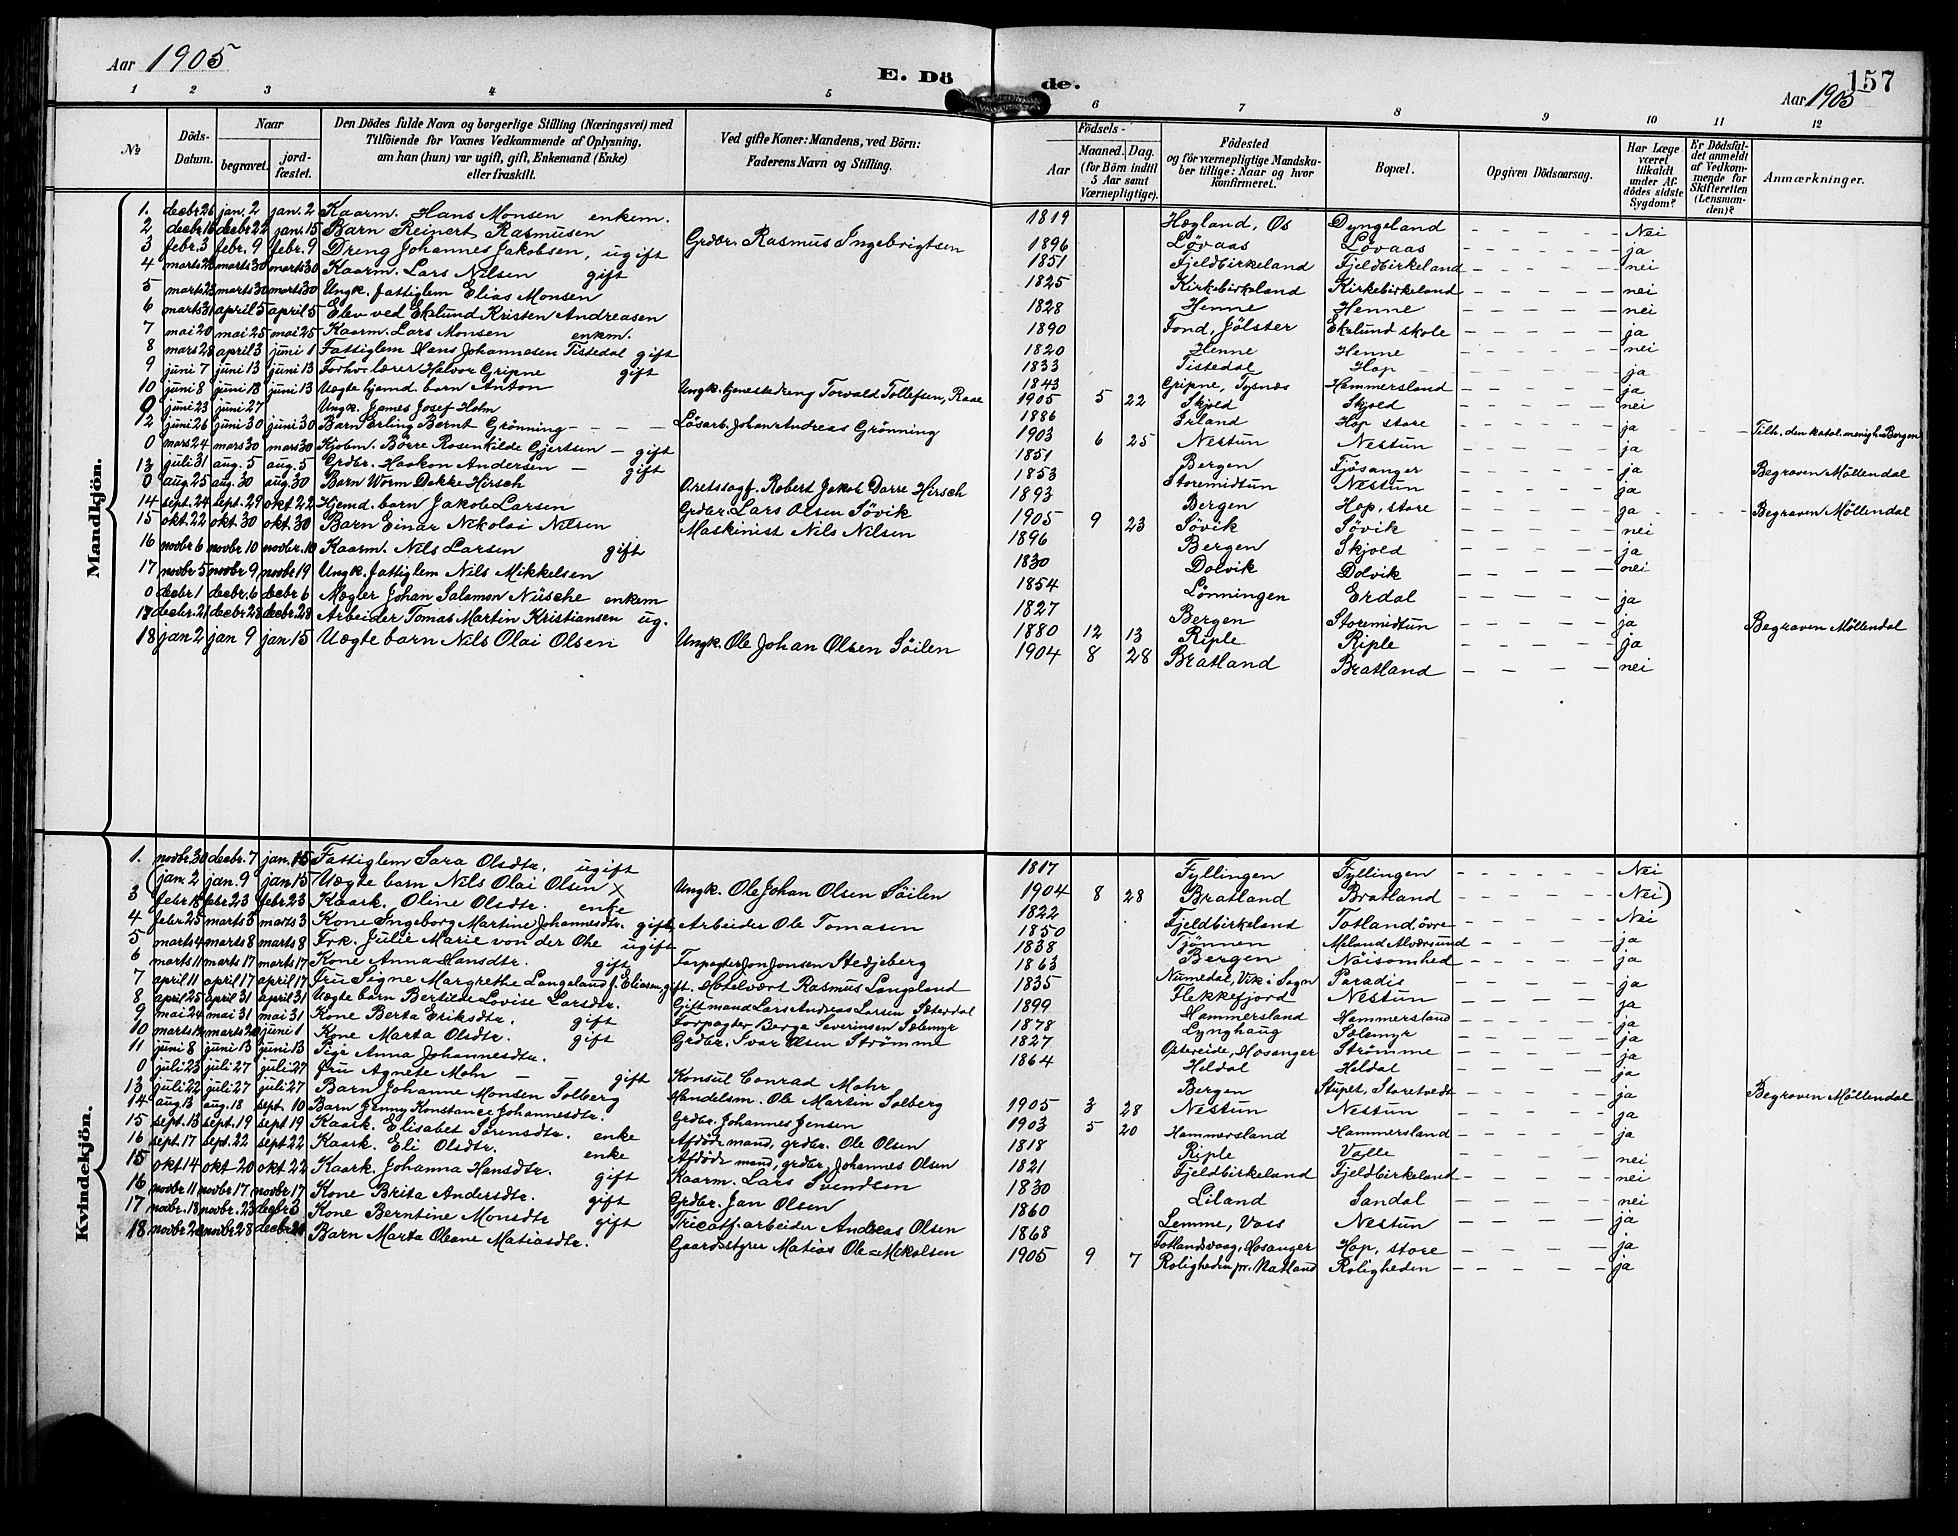 Aar 1905
E. Dö
de.
157
Aar 1905
1 2 3 4 5 6 7 8 9 10 11 12
№
Döds-Datum.
Naar
begravet.
jord-fæstet.
Den Dödes fulde Navn og borgerlige Stilling (Næringsvei) med
Tilföiende for Voxnes Vedkommende af Oplysning,
om han (hun) var ugift, gift, Enkemand (Enke)
eller fraskilt.
Ved gifte Koner: Mandens, ved Börn:
Faderens Navn og Stilling.
Födsels-
Aar
Maaned. Dag.
(for Börn indtil
5 Aar samt
Værnepligtige).
Födested
og for værnepligtige Mandska-
ber tillige: Naar og hvor
konfirmeret.
Bopæl.
Opgiven Dödsaarsag.
Har Læge
været
tilkaldt
under Af-
dödes sidste
Sygdom?
Er Dödsfal-
det anmeldt
af Vedkom-
mende for
Skifteretten
(Lensman-
den)?
Anmærkninger.
Mandkjön.
1. decbr 26 jan. 2 jan. 2 Kaarm. Hans Monsen enkem. 1819 Hægland, Os Dyngeland Nei
2 decbr 16 decbr 22 jan. 15 Barn Reinert Rasmusen Grdbr. Rasmus Ingebrigtsen 1896 Lövaas Lövaas ja
3 febr. 3 febr. 9 febr. 9 Dreng Johannes Jakobsen, ugift 1851 Fjeldbirkeland Fjeldbirkeland nei
4 marts 23 marts 30 marts 30 Kaarm. Lars Nilsen gift 1825 Kirkebirkeland Kirkebirkeland nei
5 marts 23 marts 30 marts 30 Ungk. fattiglem Elias Monsen 1828 Henne Henne nei
6 marts 31 april 5 april 5 Elev ved Eklund Kristen Andreasen 1890 Fond, Jölster Eklund skole ja
7 mai 20 mai 25 mai 25 Kaarm. Lars Monsen enkem. 1820 Henne Henne nei
8 mars 28 april 3 juni 1 Fattiglem Hans Johannesen Tistedal gift 1833 Tistedal Hop ja
9 juni 7 juni 13 juni 13 Forhv. lærer Halvor Gripne gift 1843 Gripne, Tysnæs Hammersland ja
10 juni 8 juni 13 juni 13 Uægte hjemd. barn Anton Ungk. tjenestedreng Torvald Tollefsen, Raae 1905 5 22 Skjold Skjold nei
0 juni 23 juni 27 Ungk. James Josef Holm 1886 Irland Hop store ja Tilh. den katol. menigh. i Bergen
12 juni 26 juni 30 juni 30 Barn Erling Bernt Grönning Lösarb. Johan Andreas Grönning 1903 6 25 Nestun Nestun ja
0 mars 24 mars 30 mars 30 Kjobm. Börre Rosenkilde Gjertsen gift 1851 Bergen Fjösanger ja Begraven Möllendal
13 juli 31 aug. 5 aug. 5 Grdbr. Haakon Andersen gift 1853 Storemidtun Nestun ja
0 aug. 25 aug. 30 aug. 30 Barn Worm Dekke Hirsch Aretssagf. Robert Jakob Darre Hirsch 1893 Bergen Hop, store ja Begraven Möllendal
14 sept. 24 sept. 29 okt 22 Hjemd. barn Jakob Larsen Grdbr. Lars Olsen Sövik 1905 9 23 Sövik Sövik nei
15 okt. 22 okt. 30 okt. 30 Barn Einar Nikolai Nilsen Maskinist Nils Nilsen 1896 Bergen Skjold ja
16 novbr 6 novbr 10 novbr. 10 Kaarm. Nils Larsen gift 1830 Dolvik Dolvik nei
17 novbr 5 novbr 9 novbr 19 Ungk. fattiglem Nils Mikkelsen 1854 Lönningen Erdal ja
0 decbr 1 decbr. 6 decbr 6 Mægler Johan Salomon Nüsche enkem 1827 Bergen Storemidtun ja Begraven Möllendal
17 decbr. 21 decbr 28 decbr. 28 Arbeider Tomas Martin Kristiansen ug. 1880 12 13 Riple Riple ja
18 jan 2 jan 9 jan 15 Uægte barn Nils Olai Olsen Ungk. Ole Johan Olsen Söilen 1904 8 28 Bratland Bratland nei
Kvindekjön.
1. novbr. 30 decbr. 7 jan. 15 Fattiglem Sara Olsdtr. ugift 1817 Fyllingen Fyllingen Nei
(jan. 2 jan. 9 jan 15 Uægte barn Nils Olai Olsen x Ungk. Ole Johan Olsen Söilen 1904 8 28 Bratland Bratland Nei)
3 febr 18 febr 23 febr 23 Kaark. Oline Olsdtr. enke 1822 Fjeldbirkeland Totland, övre Nei
4 febr 25 marts 3 marts 3 Kone Ingeborg Martine Johannesdtr. gift, Arbeider Ole Tomasen 1850 Tjönnen Meland Alversund ja
5 marts 4 marts 8 marts 8 Frk. Julie Marie von der Ohe ugift 1838 Bergen Nöisomhed ja
6 marts 11 marts 17 marts 17 Kone Anna Hansdtr. gift Forpagter Jon Jonsen Stedjeberg 1863 Numedal, Vik i Sogn Paradis ja
7 april 11 april 17 april 17 Fru Signe Margrethe Langeland f. Eliasen, gift. Hotelvært Rasmus Langeland 1835 Flekkefjord Nestun ja
8 april 25 april 31 april 31 Uægte barn Bertilde Lovise Larsdtr. Gift mand Lars Andreas Larsen 1899 Hammersland Hammersland ja
9 mai 24 mai 31 mai 31 Kone Berta Eriksdtr. gift Forpagter Berge Severinsen Sælemyr 1878 Lynghaug Sælemyr ja
10 marts 14 marts 20 juni 1 Kone Marta Olsdtr. gift Grdbr. Ivar Olsen Strömme 1827 Ostereide, Hosanger Strömme ja
11 juni 8 juni 13 juni 13 Pige Anna Johannesdtr. 1864 Heldal Heldal ja
0 juli 23 juli 27 juli 27 Fru Agnete Mohr gift Konsul Conrad Mohr Bergen Stupet, Storetvedt ja Begraven Möllendal
13 juli 22 juli 27 juli 27 Barn Johanne Monsen Solberg Handelsm. Ole Martin Solberg 1905 3 28 Nestun Nestun ja
14 aug 13 aug. 18 sept. 10 Barn Jenny Konstance Johannesdtr. Grdbr. Johannes Jensen 1903 5 20 Hammersland Hammersland ja
15 sept. 13 sept. 19 sept 19 Kaark. Elisabet Sörensdtr. enke Afdöde mand, grdbr. Ole Olsen 1818 Riple Valle nei
16 sept. 17 sept. 22 sept 22 Kaark. Eli Olsdtr. enke Afdöde mand, grdbr. Johannes Olsen 1821 Fjeldbirkeland Fjeldbirkeland nei
15 okt 14 okt 20 okt 22 Kaark. Johanna Hansdtr. gift Kaarm. Lars Svendsen 1830 Liland Sandal nei
16 novbr 11 novbr 17 novbr 17 Kone Brita Andersdtr. gift Grdbr. Jan Olsen 1860 Lemme, Voss Nestun ja
17 novbr. 18 novbr. 23 decbr 3 Kone Berntine Monsdtr gift Tricotf. arbeider Andreas Olsen 1868 Totlandsvaag, Hosanger Hop, store ja
18 novbr 24 novbr 28 decbr Barn Marta Oleane Matiasdtr. Gaardsstyrer Matias Ole=Mikalsen 1905 9 7 Roligheden pr. Natland Roligheden ja